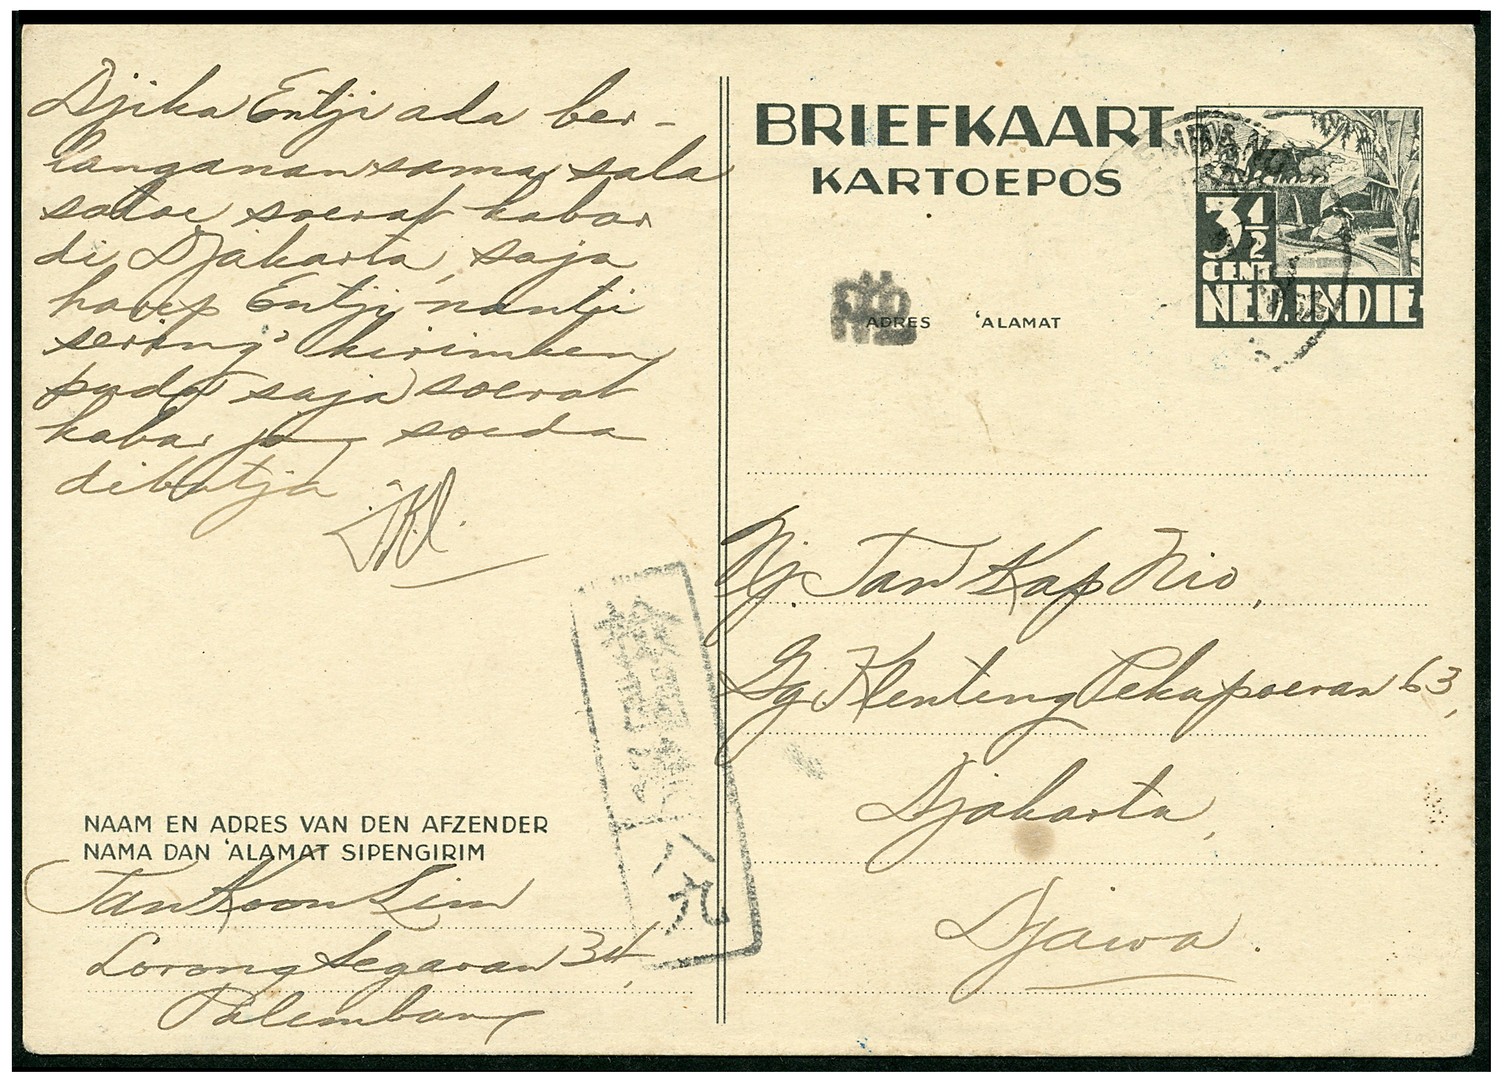 Djika Entji ada ber-
langanan sama sala
satoe soerat kabar
di Djakarta, saja
harep Entji nanti
sering² kirimken
pada saja soerat
kabar jang soeda
dibatja
NAAM EN ADRES VAN DEN AFZENDER
NAMA DAN 'ALAMAT SIPENGIRIM
Tan Koon Lim
Lorong Segaran 34,
Palembang
八九
BRIEFKAART
KARTOEPOS
3 1/2
CENT
NED. INDIE
ADRES 'ALAMAT
Nj. Tan Kap Nio,
Gg. Klenteng Pekapoeran 63,
Djakarta,
Djawa.